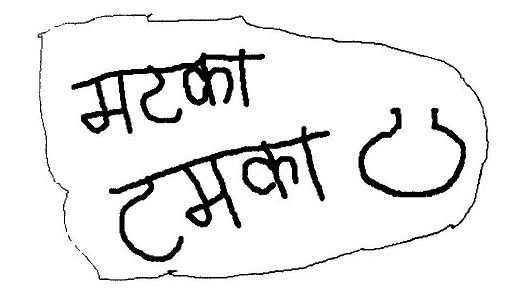 मटका
टमका